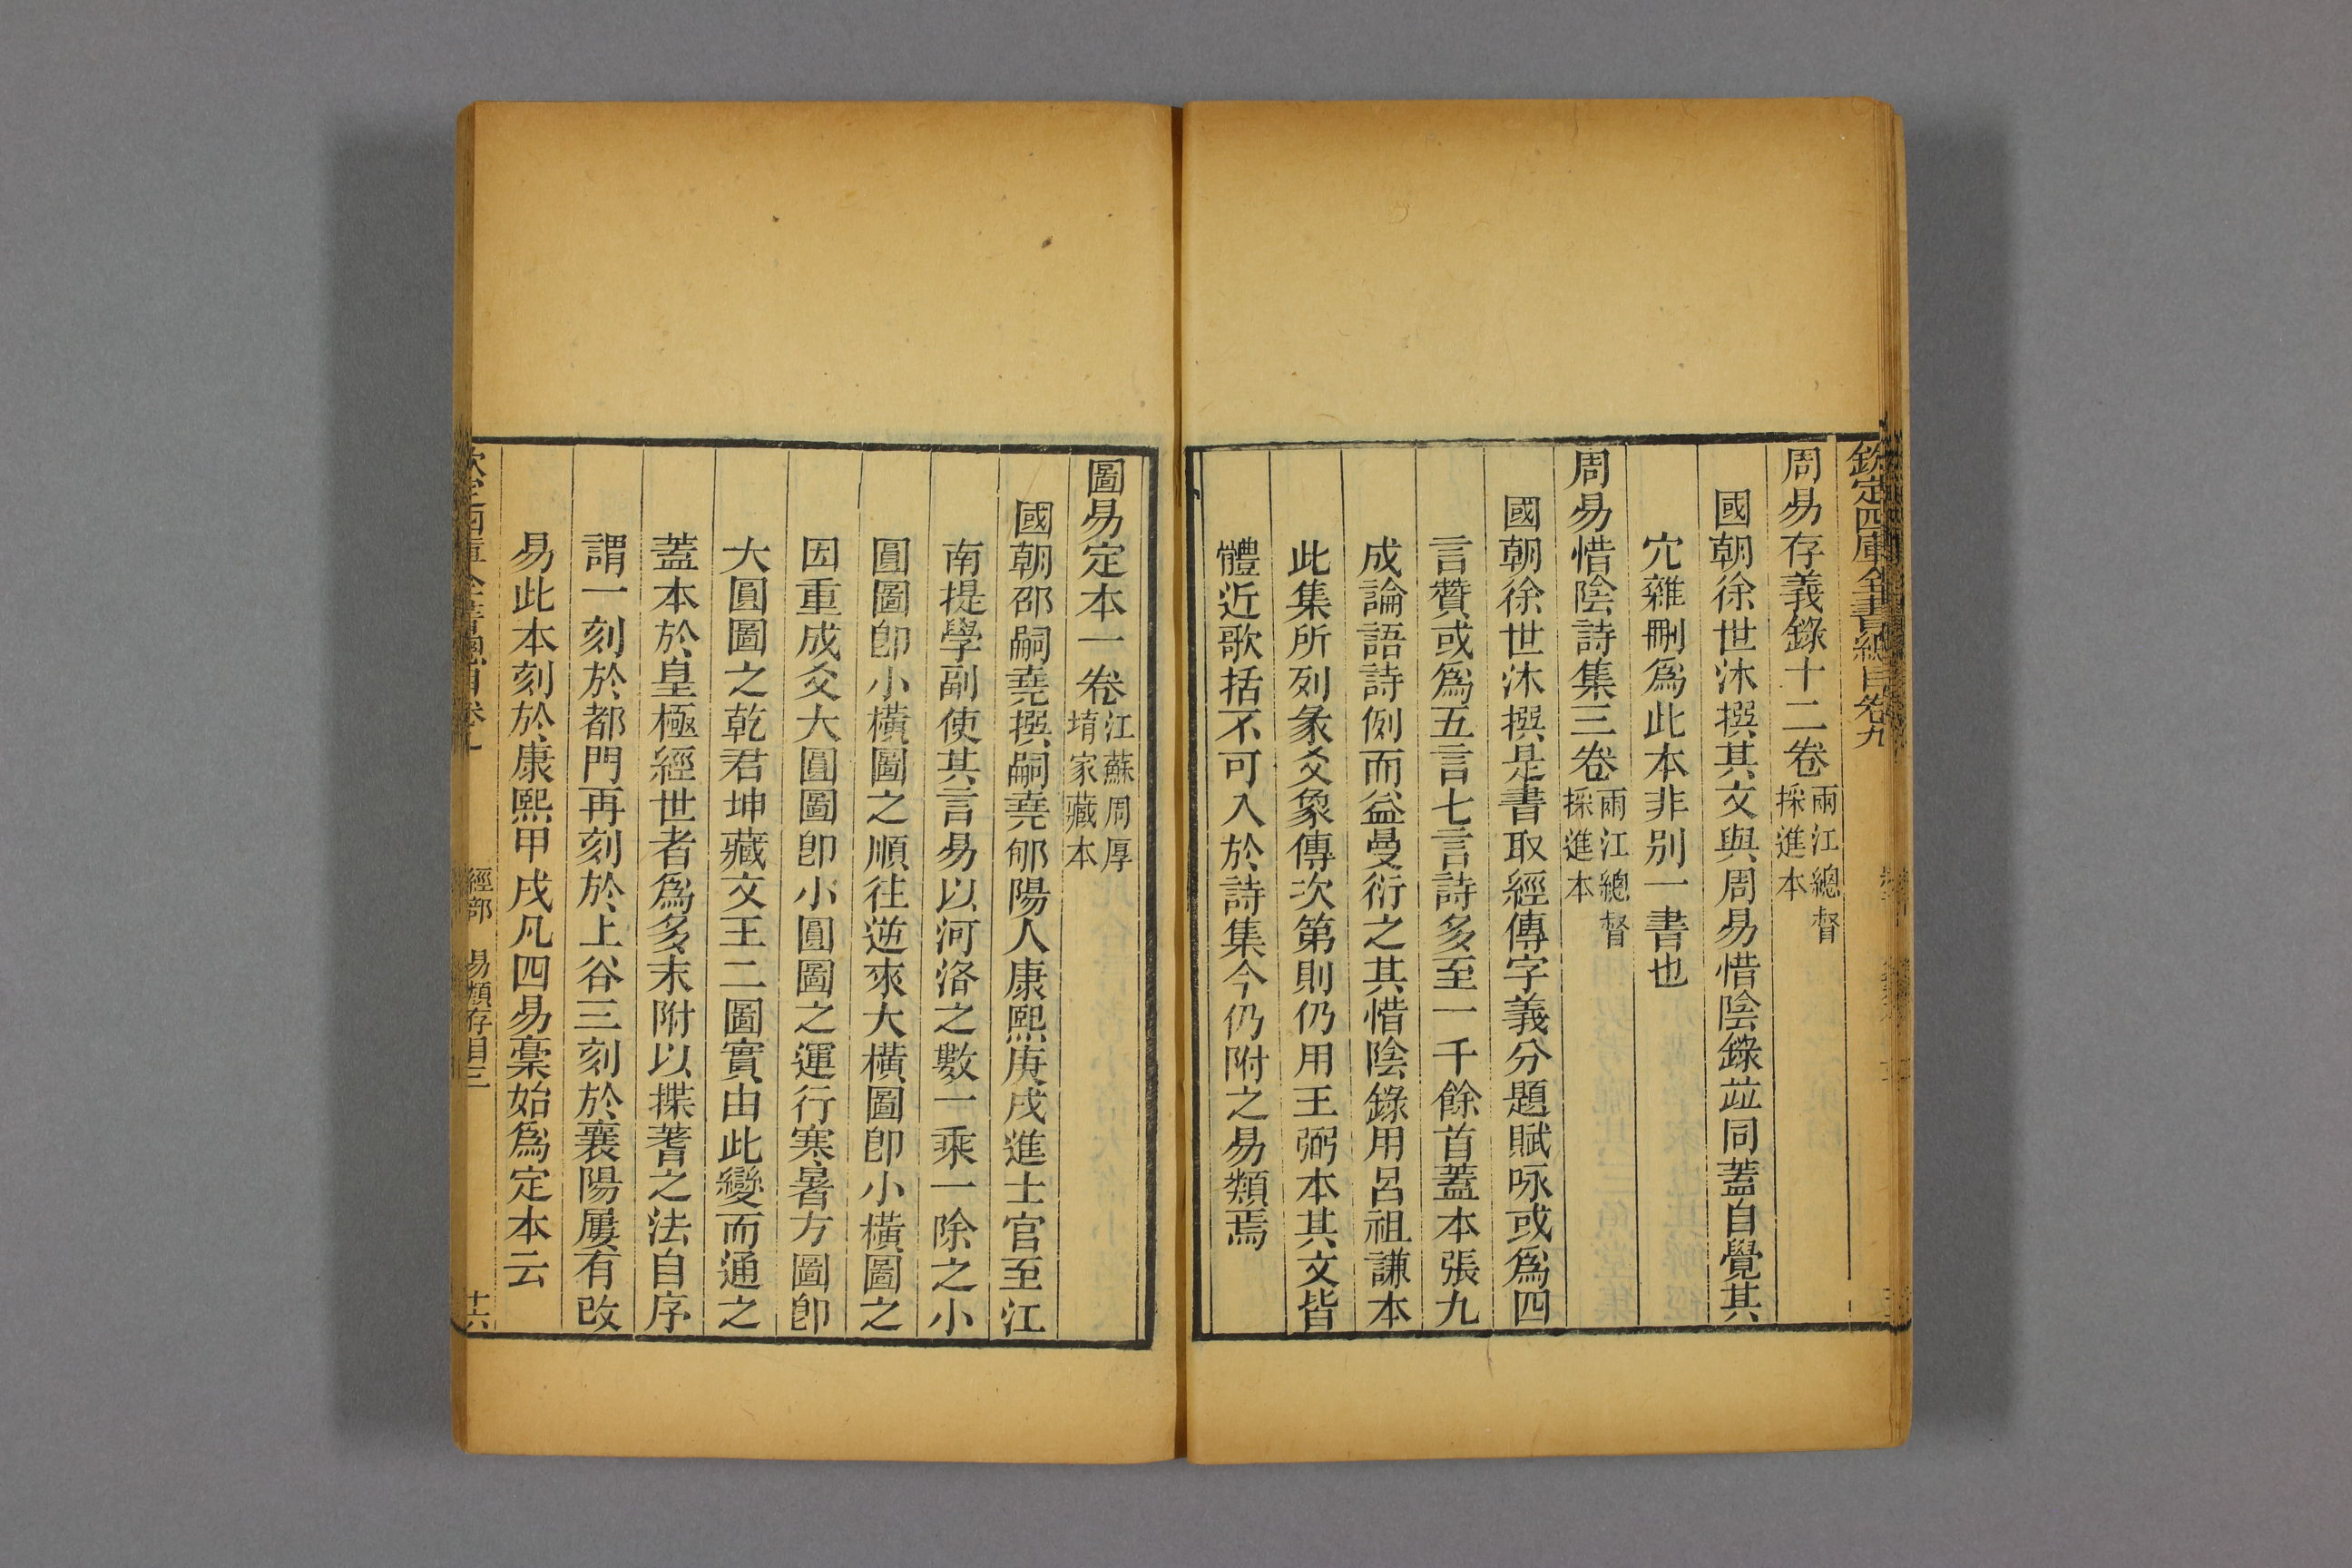 欽定四庫全書總目卷九
周易存義錄十二卷兩江總督採進本
國朝徐世沐撰其文與周易惜陰錄竝同蓋自覺其
宂雜刪爲此本非别一書也
周易惜陰詩集三卷兩江總督採進本
國朝徐世沐撰是書取經傳字義分題賦咏或爲四
言贊或爲五言七言詩多至一千餘首蓋本張九
成論語詩例而益曼衍之其惜陰錄用呂祖謙本
此集所列彖爻象傳次第則仍用王弼本其文皆
體近歌括不可入於詩集今仍附之易類焉
圖易定本一卷江蘇周厚堉家藏本
國朝邵嗣堯撰嗣堯郇陽人康熙庚戌進士官至江
南提學副使其言易以河洛之數一乘一除之小
圓圖卽小橫圖之順往逆來大橫圖卽小橫圖之
因重成爻大圓圖卽小圓圖之運行寒暑方圖卽
大圓圖之乾君坤藏文王二圖實由此變而通之
蓋本於皇極經世者爲多末附以揲蓍之法自序
謂一刻於都門再刻於上谷三刻於襄陽屢有改
易此本刻於康熙甲戌凡四易稾始爲定本云
欽定四庫全書總目卷九
經部
易類存目三
十六